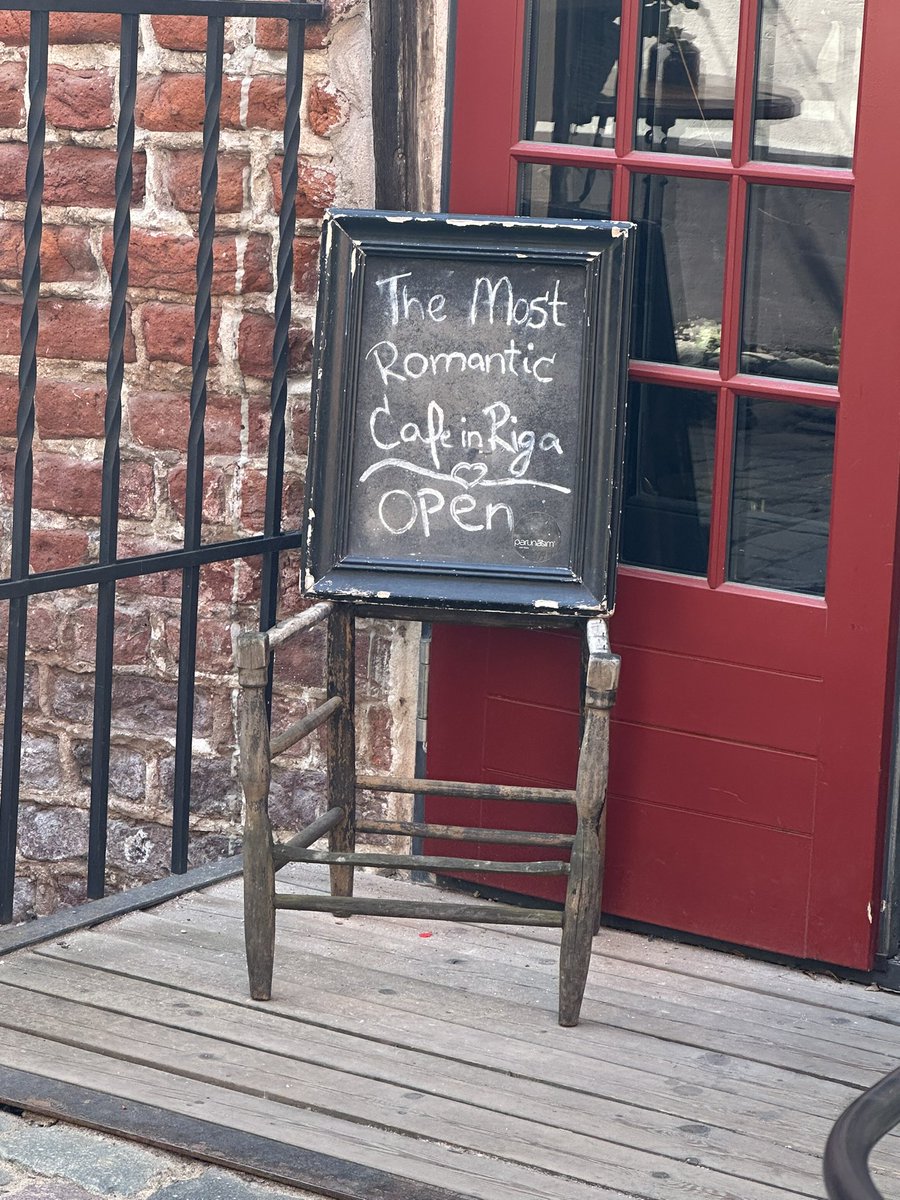 The Most
Romantic
Cafe in Riga
OPEN
parunāsim